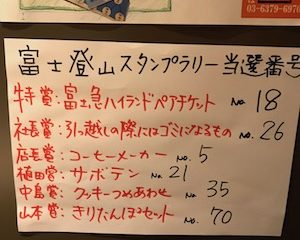 03-6379-6970
富士登山スタンプラリー当選番号
特賞：富士急ハイランドペアチケット No.18
社長賞：引っ越しの際にはゴミになるもの No.26
店長賞：コーヒーメーカー No.5
植田賞：サボテン No.21
中島賞：クッキーつめあわせ No.35
山本賞：きりたんぽセット No.70